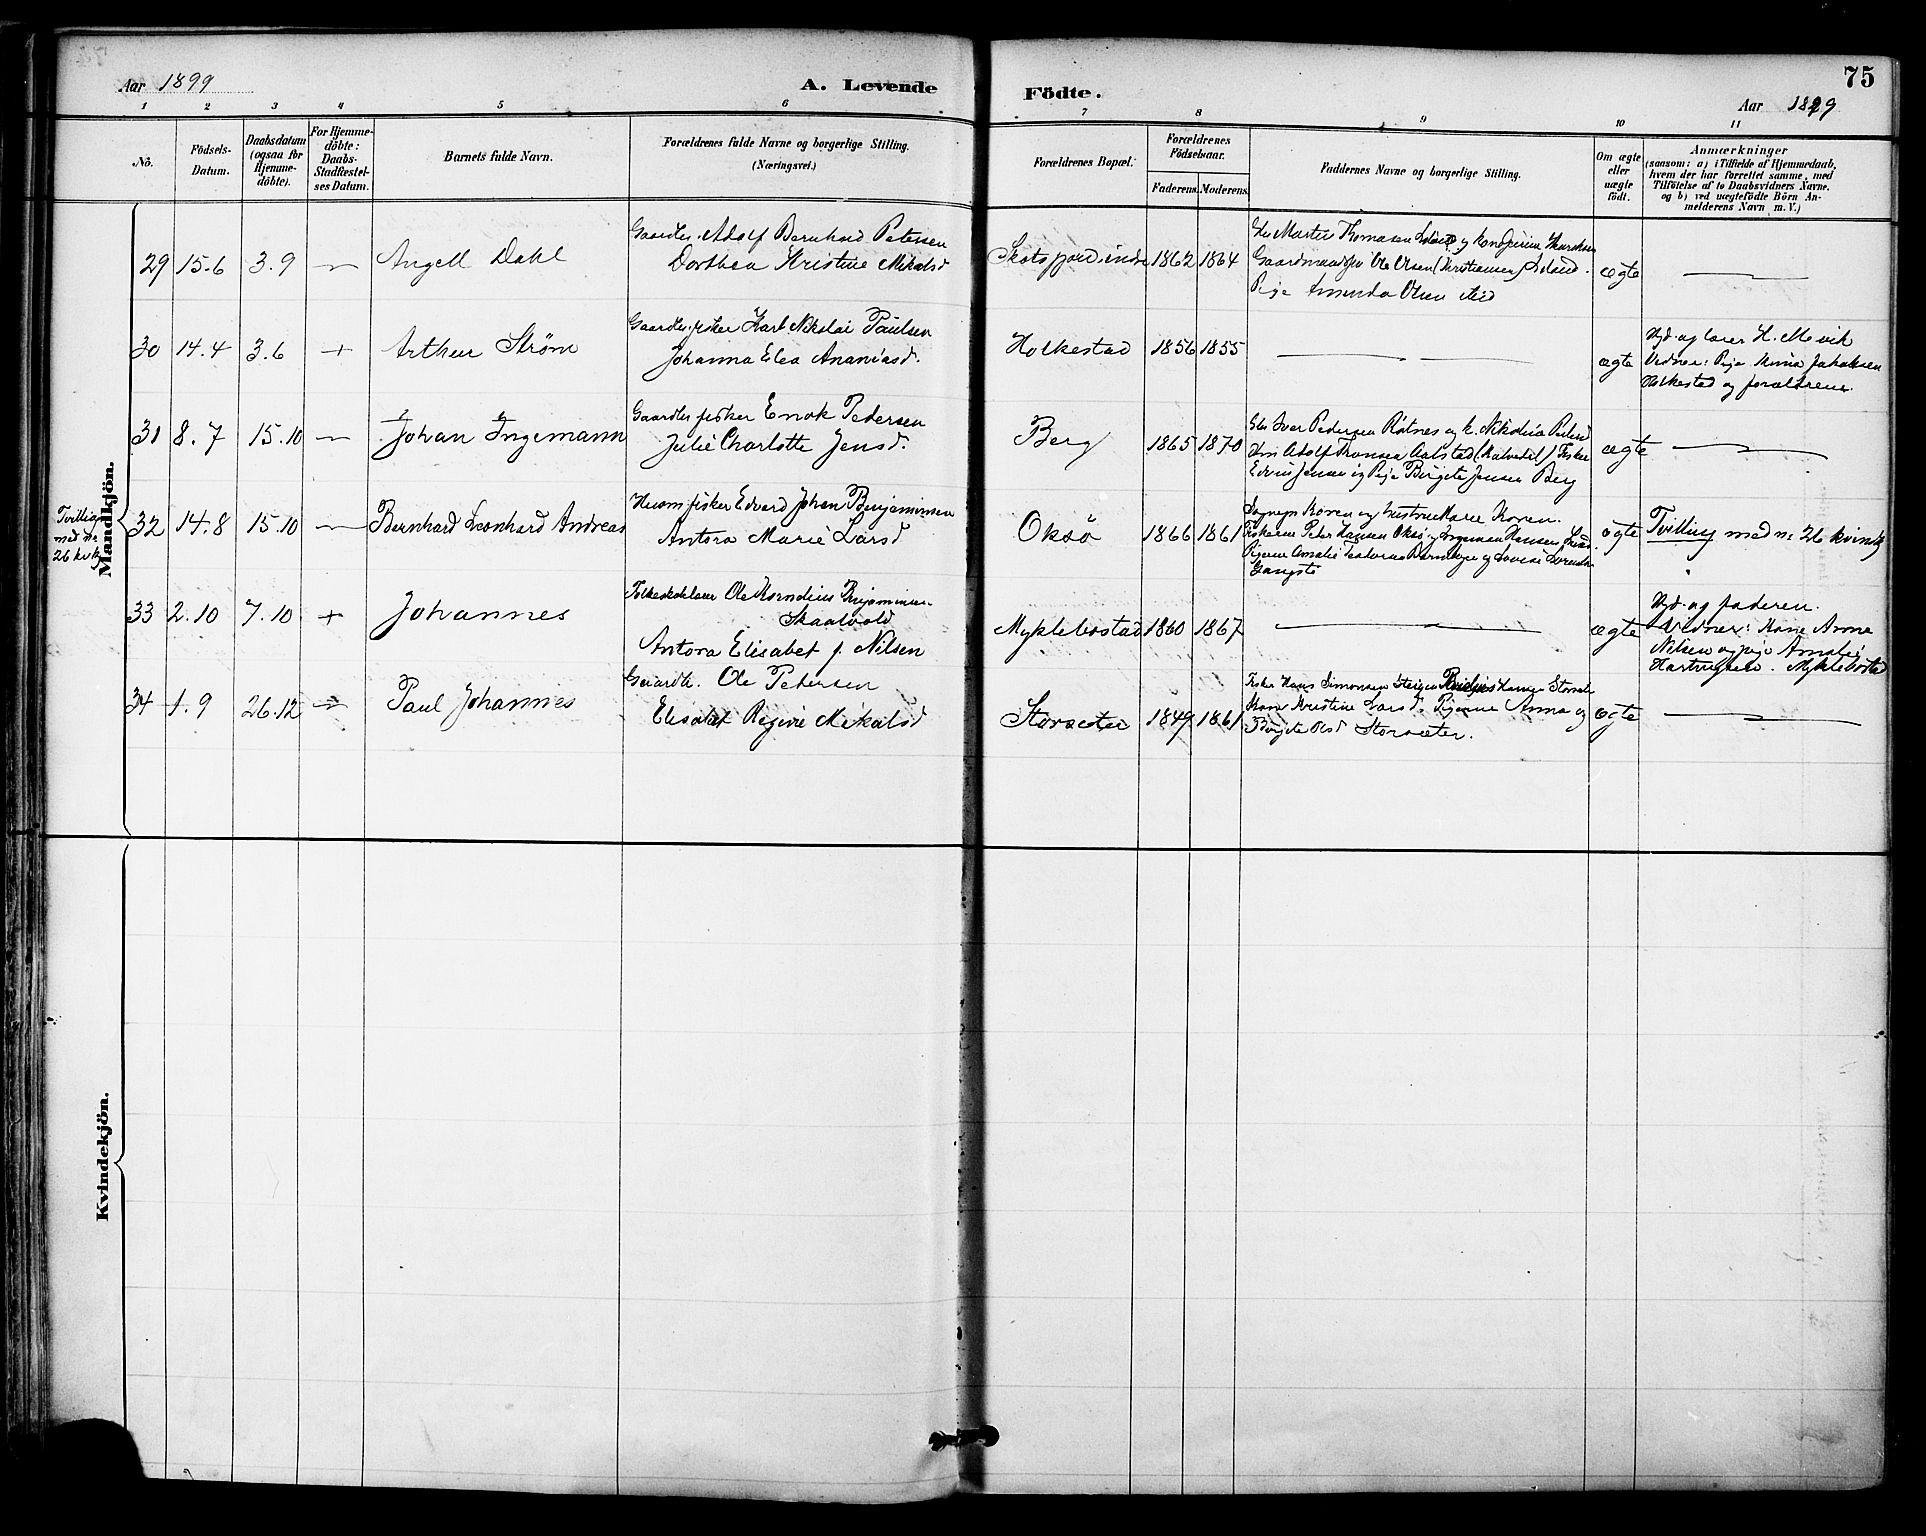 Aar 1899
A. Levende
Födte.
75
Aar 1899
1 2 3 4 5 6 7 8 9 10 11
No.
Födsels-
Datum.
Daabsdatum
(ogsaa for
Hjemme-
döbte).
For Hjemme-
döbte:
Daabs-
Stadfestel-
ses Datum.
Barnets fulde Navn.
Forældrenes fulde Navne og borgerlige Stilling.
(Næringsvei.)
Forældrenes Bopæl.
Forældrenes
Födselsaar.
Faderens. Moderens.
Faddernes Navne og borgerlige Stilling.
Om ægte
eller
uægte
födt.
Anmærkninger
(saasom: a) i Tilfælde af Hjemmedaab,
hvem der har forrettet samme, med
Tilföielse af to Daabsvidners Navne,
og b) ved uægtefödte Börn An-
melderens Navn m. V.)
Mandkjön.
29 15.6 3.9 — Angell Dahl
Gaardbr. Adolf Bernhard Petersen
Dorthea Kristine Mikalsd
Skotsfjord indre 1862 1864
Martin Thomasen og
Ole Olsen (Kristiansen)
Pige Amanda Olsen
ægte —
30 14.4 3.6 + Arthur Strøm
Gaardbr. fisker Karl Nikolai Paulsen
Johanna Elea Ananiasd.
Holkestad 1856 1855 — —
ægte
Hjd. af lærer H. Mevik
Vidner: Pige Mina Jakobsen
Holkestad og forældrene.
31 8.7 15.10 — Johan Ingemann
Gaardbr fisker Enok Pedersen
Julie Charlotte Jensd.
Berg 1865 1870
Gbr Ivar Pedersen Røtnes og k. Nikolina
Adolf Fransen Aalstad Fisker
Edvin Jensen og Pige Birgite Jensen Berg
ægte —
Tvilling
med nr
26 kvk.
32 14.8 15.10 — Bernhard Leonhard Andreas
Husm fisker Edvard Johan Benjaminsen
Antora Marie Larsd
Oksø 1866 1861
Sognepr Koren og hustru Marie Koren.
Fiskerne Peter Hansen Oksø og Jørgensen Hansen
Pigerne Amalie og Lovise
ægte
Tvilling med nr 26 kvindekj
33 2.10 7.10 + Johannes
Folkeskolelærer Ole Korneleus Benjaminsen
Skaalvold
Antora Elisabet f. Nilsen
Myklebostad 1860 1867 — —
ægte
Hjd. af faderen.
Vidner: Kone Anne
Nilsen og pige Amalie
Myklebostad
34 1.9 26.12 Paul Johannes
Gaardbr. Ole Petersen
Elisabet Regine Mikalsd
Storsæter 1849 1861
Fisker Hans Simonsen Steigen Hansen
Kone Kristine Larsd. Pigerne Anna og
Birgite Olsd Storsæter.
ægte —
Kvindekjön.